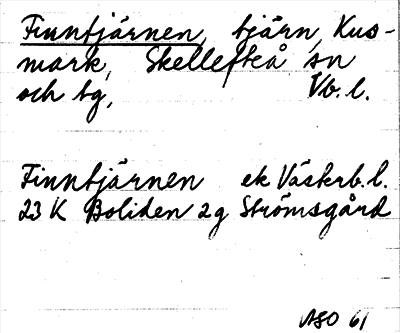 Finntjärnen, tjärn, Kus-
mark, Skellefteå sn
och tg, Vb. l.
Finntjärnen ek Västerb. l.
23 K Boliden 2g Strömsgård
ASO 61